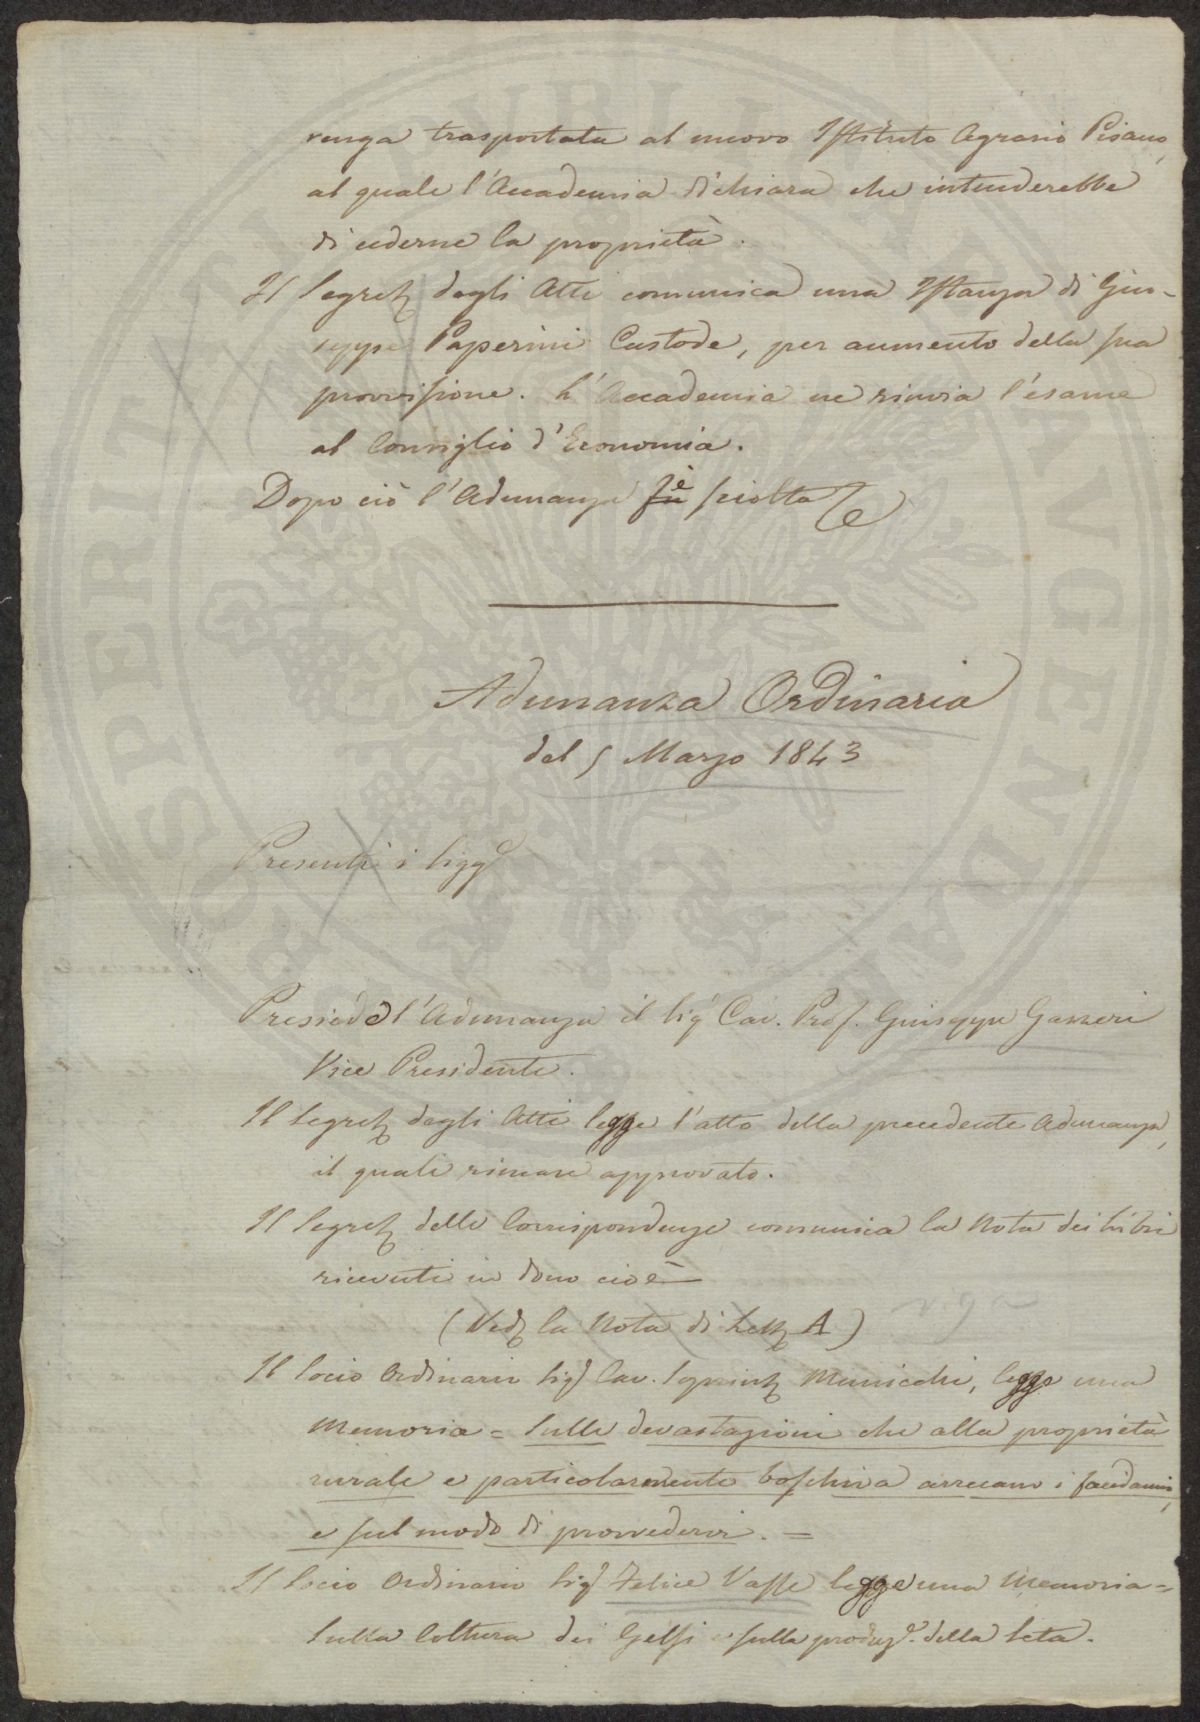 venga trasportata al nuovo Istituto Agrario Pisano,
al quale l'Accademia dichiara che intenderebbe
di cederne la proprietà.
Il Segret. degli Atti comunica una Istanza di Giu-
seppe Paperini Custode, per aumento della sua
provvisione. L'Accademia ne rinvia l'esame
al Consiglio d'Economia.
Dopo ciò l'Adunanza fu è sciolta
Adunanza Ordinaria
del 5 Marzo 1843
Presenti i Sigg.
Presiede l'Adunanza il Sig. Cav. Prof. Giuseppe Gazzeri
Vice Presidente.
Il Segret. degli Atti legge l'atto della precedente Adunanza,
il quale rimane approvato.
Il Segret. delle Corrispondenze comunica la Nota dei Libri
ricevuti in dono cioè
(Ved. la Nota di Lett. A)
Il Socio Ordinario Sig. Cav. Municchi, legge una
Memoria = Sulle devastazioni che alla proprietà
rurale e particolarmente boschiva arrecano i facidanni,
e sul modo di provvedervi. =
Il Socio Ordinario Sig. Felice Vasse legge una Memoria =
Sulla Coltura dei Gelsi e sulla produz. della Seta.
PROSPERITATI PUBLICAE AUGENDAE